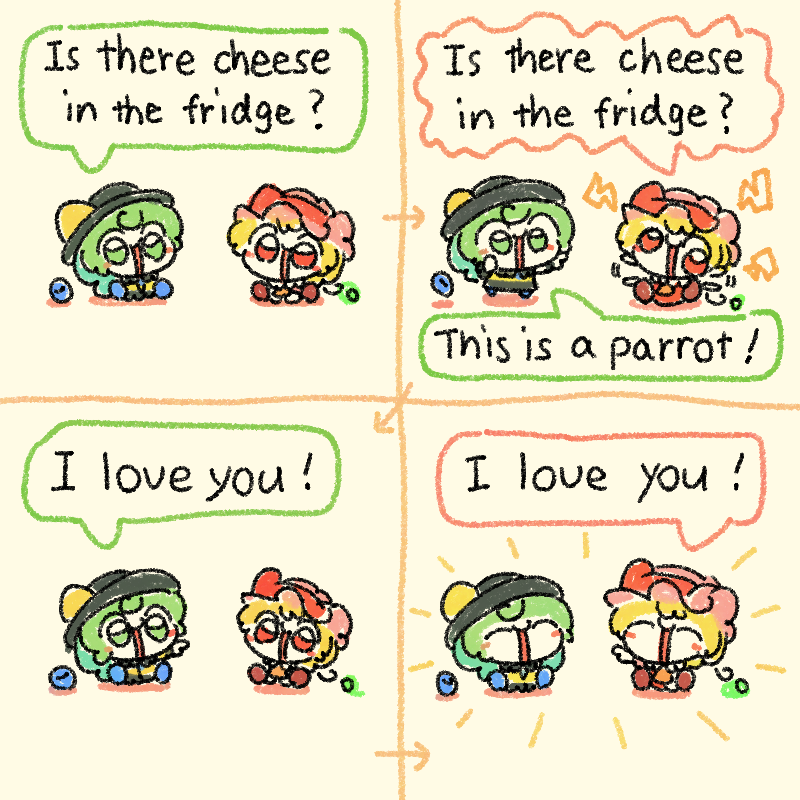 Is there cheese
in the fridge?
Is there cheese
in the fridge?
This is a parrot!
I love you!
I love you!